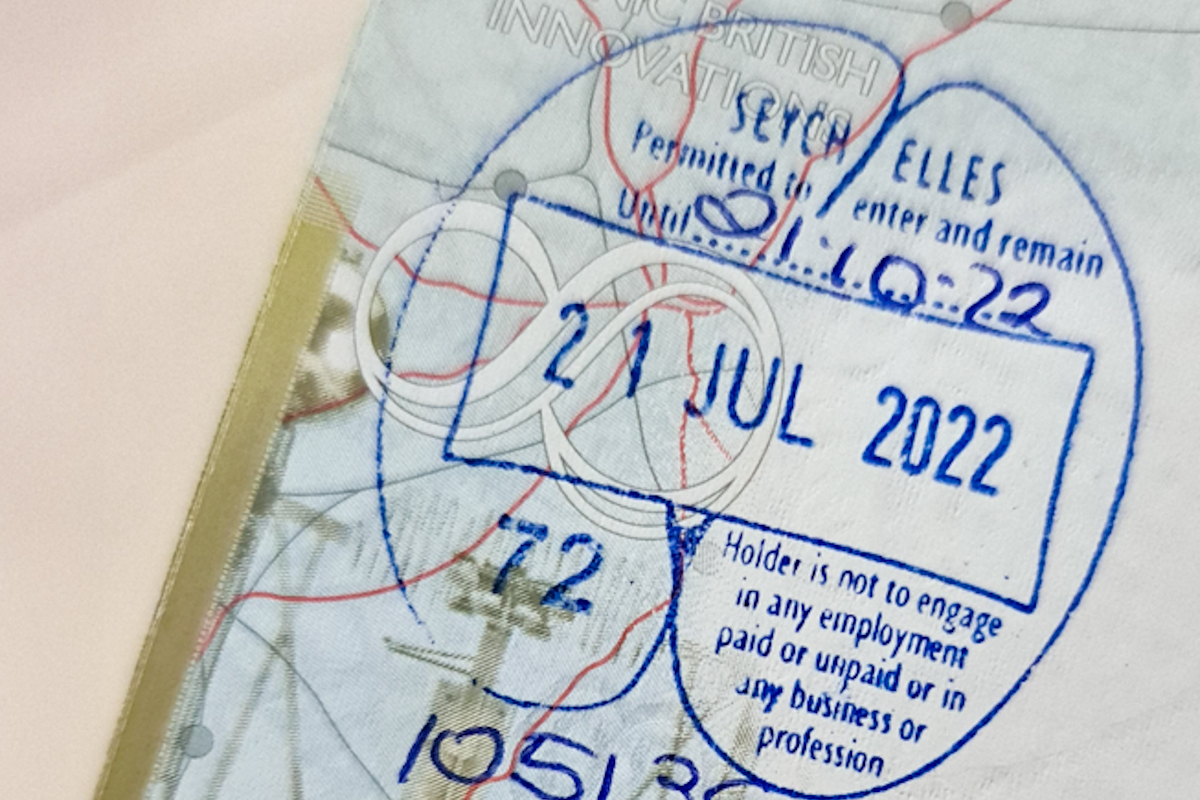 BRITISH
INNOVATIONS
SEYCH ELLES
Permitted to enter and remain
Until 01·10·22
21 JUL 2022
72
Holder is not to engage
in any employment
paid or unpaid or in
any business or
profession